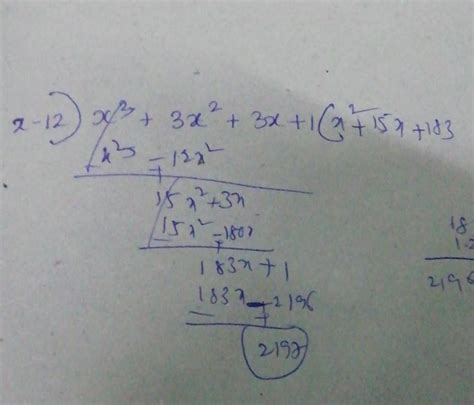 x-12) x³ + 3x² + 3x + 1 (x² + 15x + 183
x³ - 12x²
15x² + 3x
15x² - 180x
183x + 1
183x - 2196
2197
18
2196